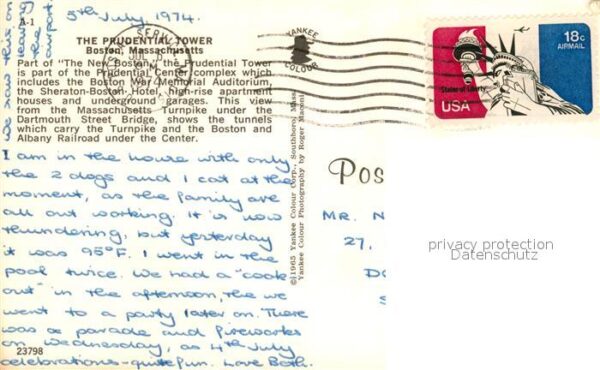 5th July 1974.
A-1
we saw this on
leaving
the
airport.
THE PRUDENTIAL TOWER
Boston, Massachusetts
Part of "The New Boston", the Prudential Tower
is part of the Prudential Center complex which
includes the Boston War Memorial Auditorium,
the Sheraton-Boston Hotel, high-rise apartment
houses and underground garages. This view
from the Massachusetts Turnpike under the
Dartmouth Street Bridge, shows the tunnels
which carry the Turnpike and the Boston and
Albany Railroad under the Center.
I am in the house with only
the 2 dogs and 1 cat at the
moment, as the family are
all out working. It is now
thundering, but yesterday
it was 95°F. I went in the
pool twice. We had a "cook
out" in the afternoon, the we
went to a party later on. There
was a parade and fireworks
on Wednesday, as 4th July
celebrations - quite fun. Love Beth.
23798
©1965 Yankee Colour Corp., Southboro, Mass.
Yankee Colour Photography by Roger
YANKEE
COLOUR
18c
AIRMAIL
Statue of Liberty
USA
Pos
MR. N
27,
privacy protection
Datenschutz